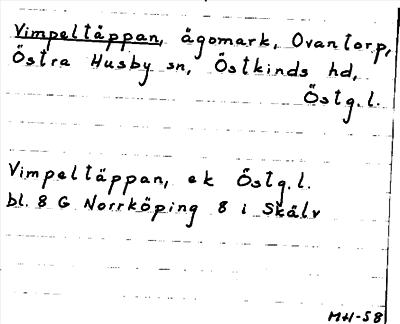 Vimpeltäppan, ägomark, Ovantorp,
Östra Husby sn, Östkinds hd,
Östg.l.
Vimpeltäppan, ek Östg.l.
bl. 8 G Norrköping 8 i Skälv
MH-58